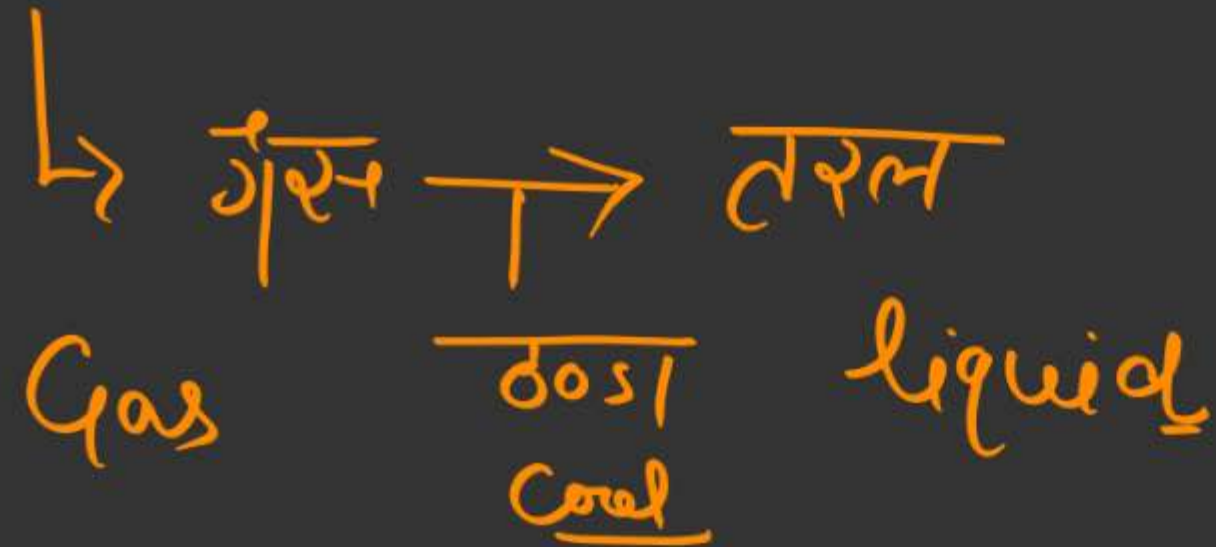 गैस → तरल
Gas ठण्डा liquid
Cool